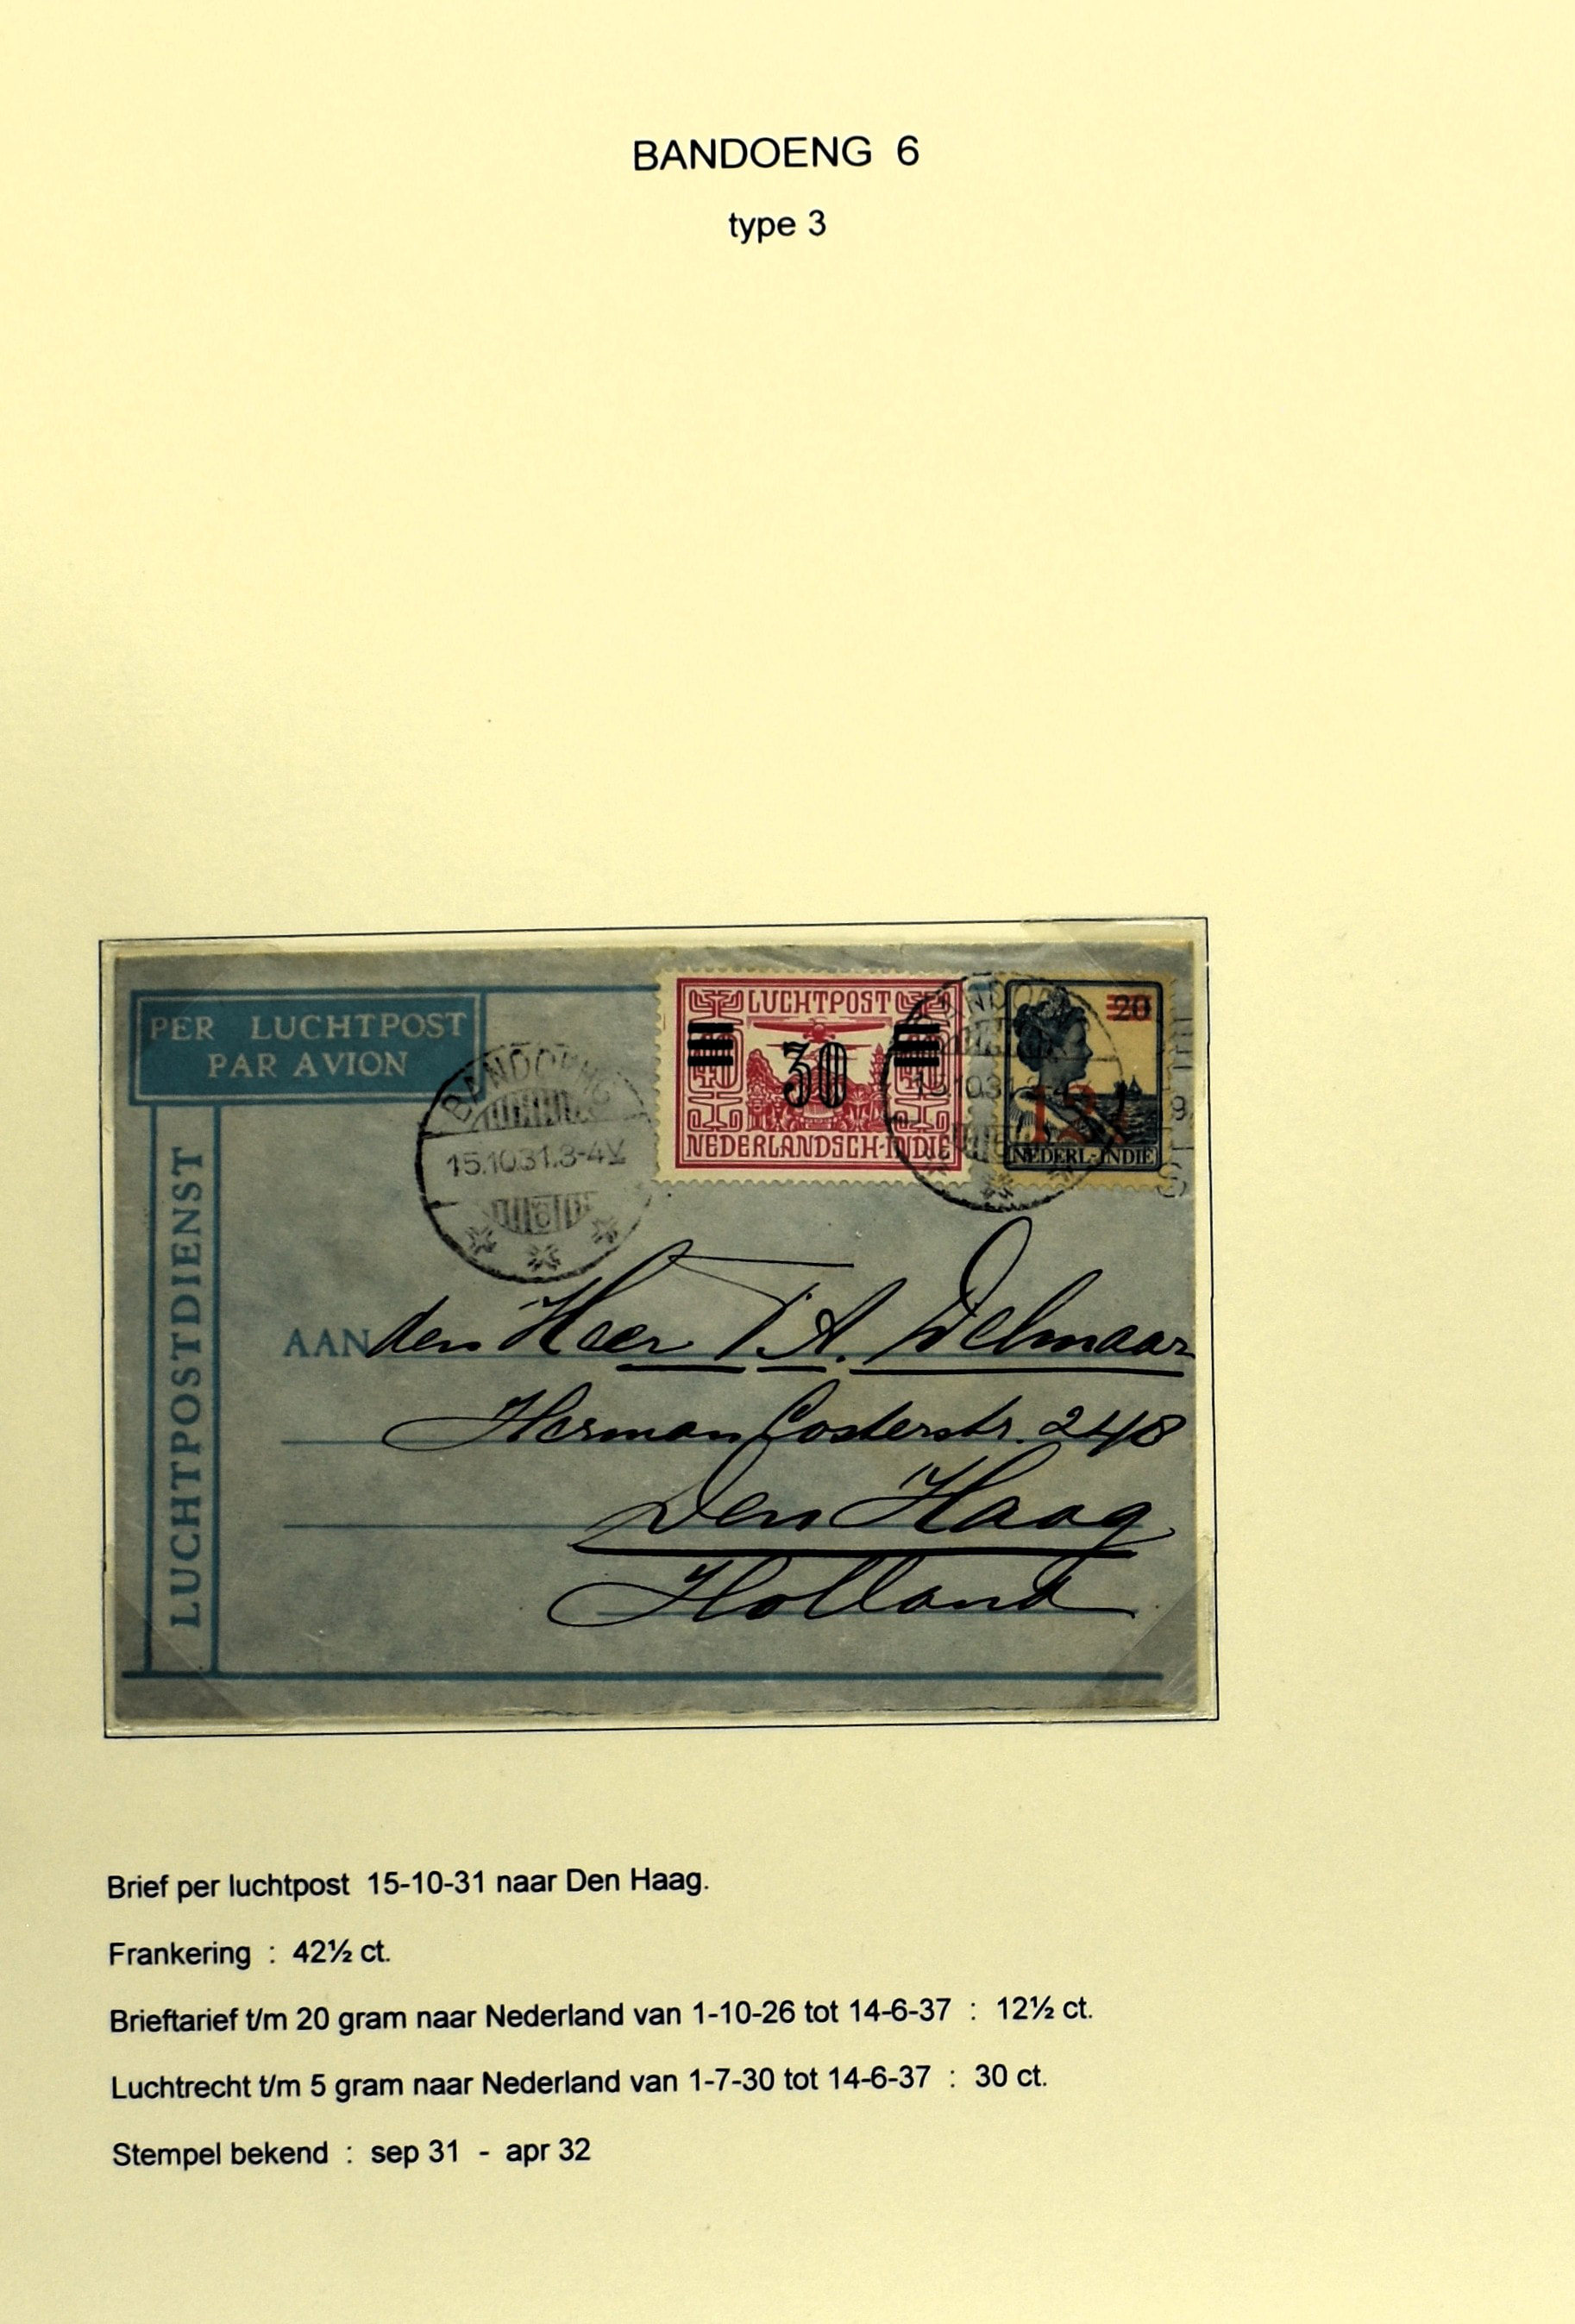 BANDOENG 6
type 3
PER LUCHTPOST
PAR AVION
LUCHTPOSTDIENST
BANDOENG
15.10.31.3-4V
6
LUCHTPOST
30
40 40
NEDERLANDSCH-INDIE
BANDOE
15.10.31.3-4
20
12½
NEDERL.-INDIE
AAN den Heer T. A. Delmaar
Herman Costerstr. 248
Den Haag
Holland
Brief per luchtpost 15-10-31 naar Den Haag.
Frankering : 42½ ct.
Brieftarief t/m 20 gram naar Nederland van 1-10-26 tot 14-6-37 : 12½ ct.
Luchtrecht t/m 5 gram naar Nederland van 1-7-30 tot 14-6-37 : 30 ct.
Stempel bekend : sep 31 - apr 32